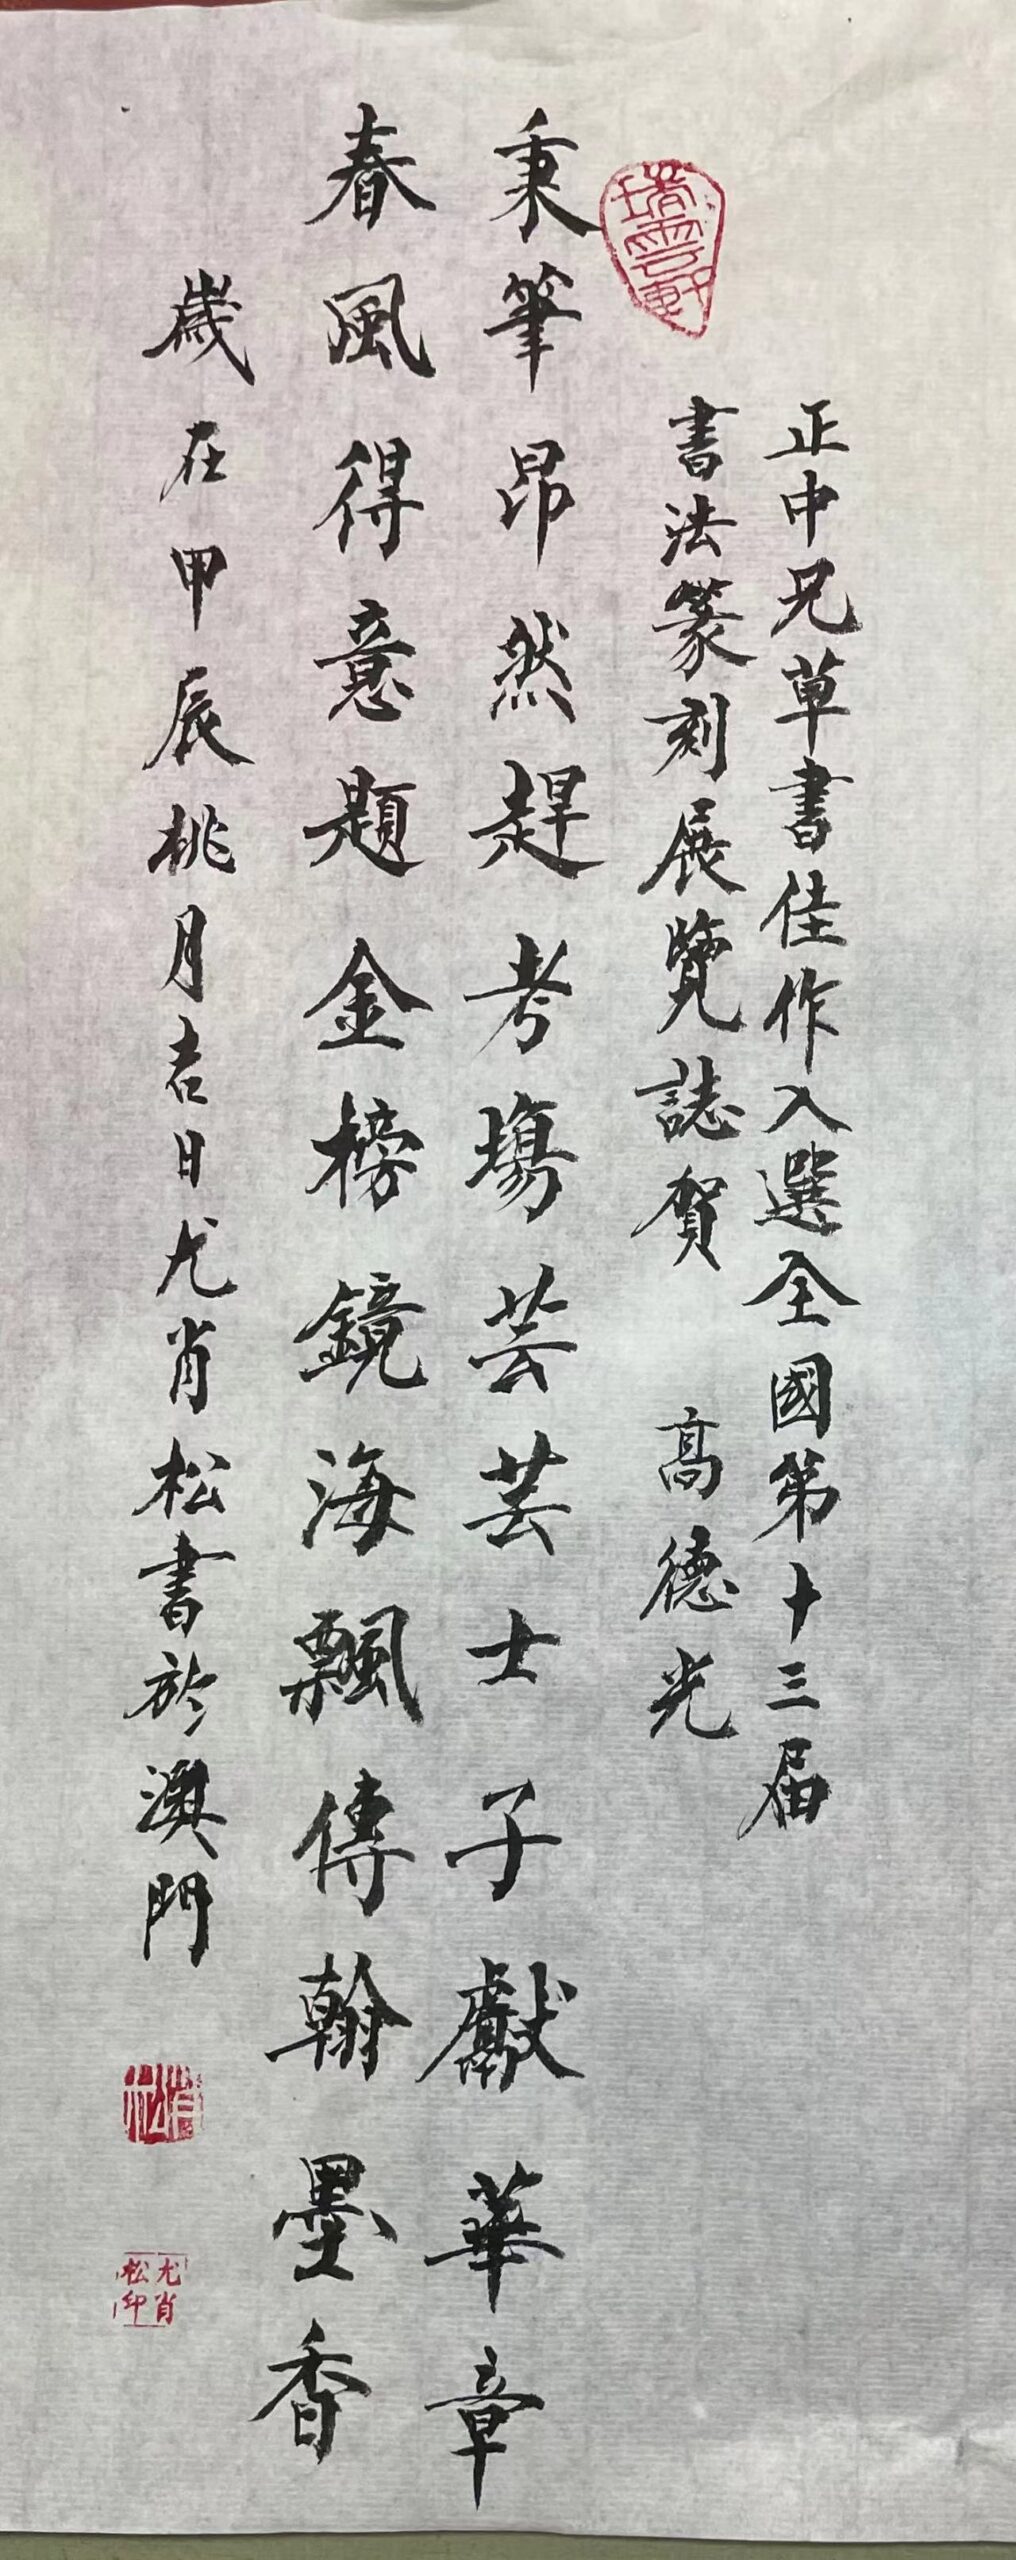 正中兄草書佳作入選全國第十三届
書法篆刻展覽誌賀 高德光
秉筆昂然趕考場芸芸士子獻華章
春風得意題金榜鏡海飄傳翰墨香
歲在甲辰桃月吉日尤肖松書於澳門
尤肖松印